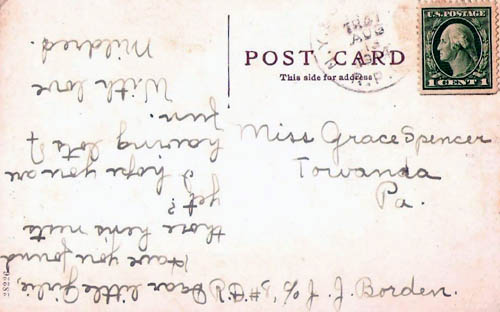 POST CARD
This side for address
U.S. POSTAGE
1 CENT 1
AUG
Miss Grace Spencer
Towanda
Pa.
R.D. #3, c/o J. J. Borden.
Dear little Girlie,
Have you found
those hen's nests
yet?
I hope you are
having lots of
fun.
With love
Mildred.